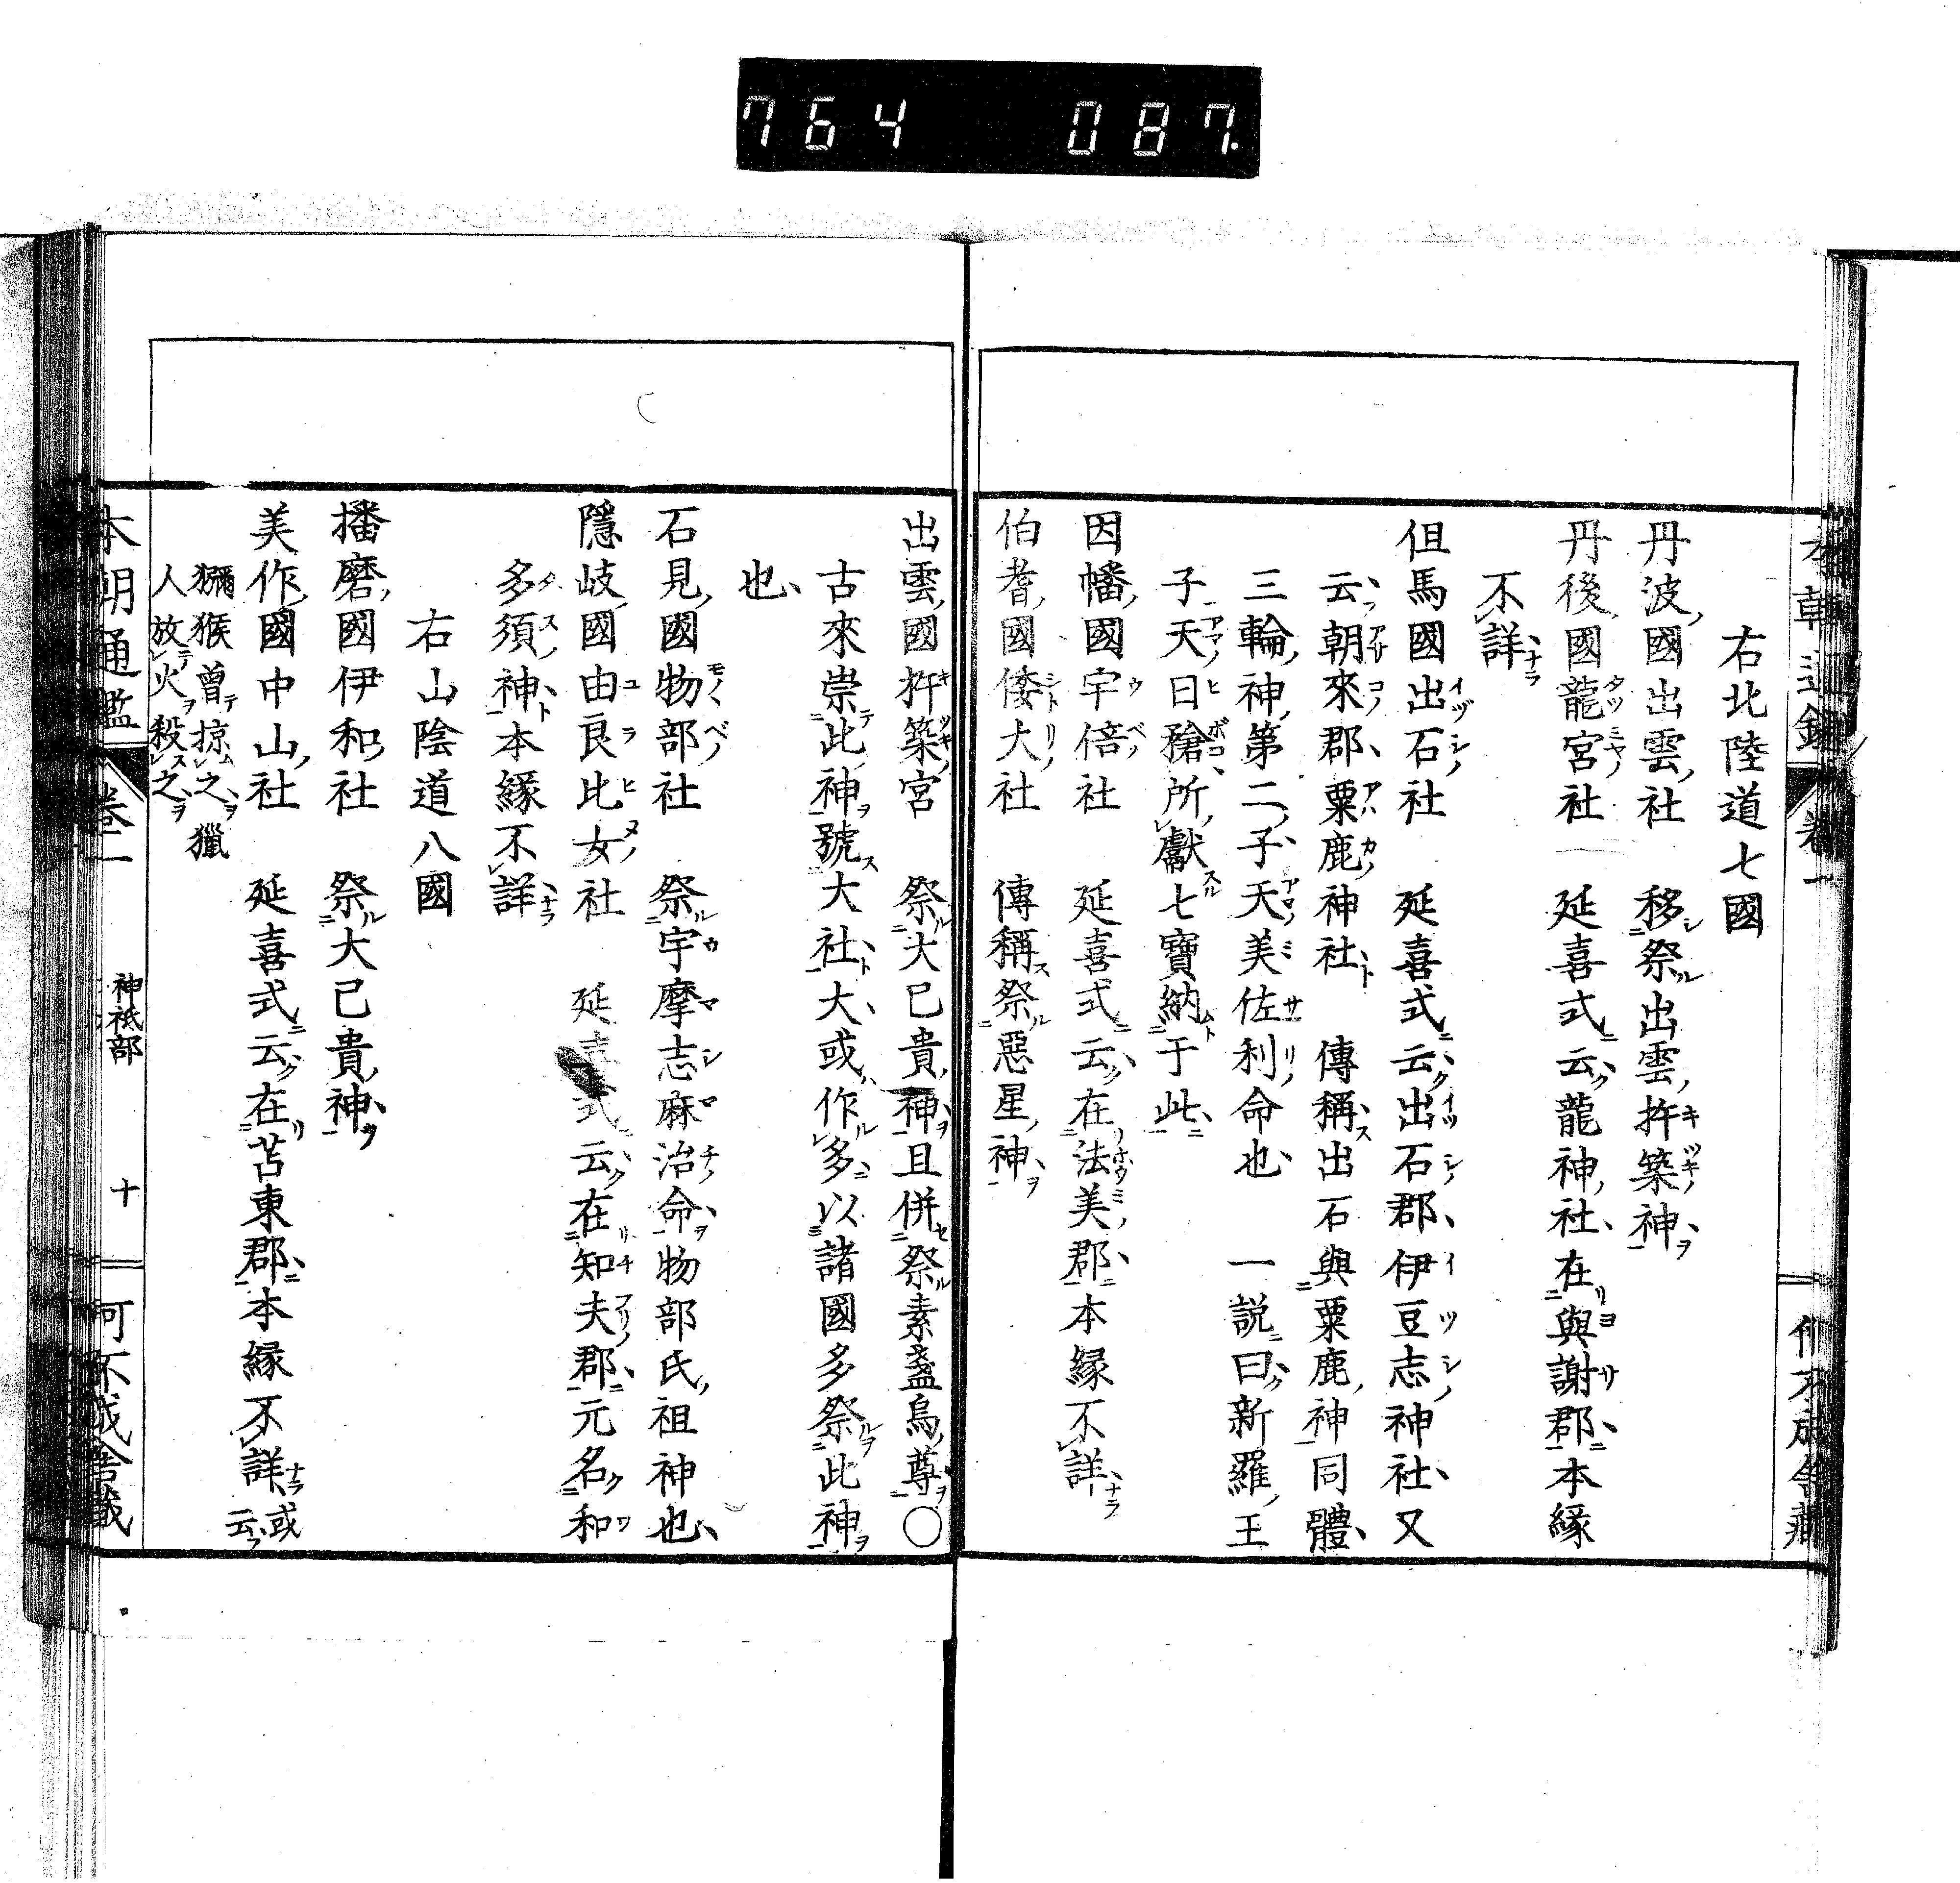 764 087.
右北陸道七國
丹波國出雲社　移祭出雲杵築神
丹後國龍宮社　延喜式云龍神社在與謝郡本縁
不詳
但馬國出石社　延喜式云出石郡伊豆志神社又
云朝來郡粟鹿神社　傳稱出石與粟鹿神同體
三輪神第二子天美佐利命也　一説曰新羅王
子天日矛所獻七寶納于此
因幡國宇倍社　延喜式云在法美郡本縁不詳
伯耆國倭大社　傳稱祭惡星神
出雲國杵築宮　祭大己貴神且併祭素盞烏尊〇
古來崇此神號大社大或作多以諸國多祭此神
也
石見國物部社　祭宇摩志麻治命物部氏祖神也
隱岐國由良比女社　延喜式云在知夫郡元名和
多須神本縁不詳
右山陰道八國
播磨國伊和社　祭大己貴神
美作國中山社　延喜式云在苫東郡本縁不詳或云
獼猴曾掠之獵
人放火殺之
本朝通鑑　卷一　神祇部　十